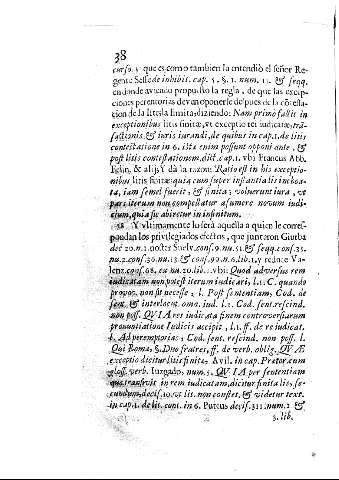 38
curso. 5 que es como tambien la entendió el señor Re-
gente Sesse de inhibit. cap. 5. §. 1. num. 11. & seqq.
en donde aviendo propuesto la regla, de que las excep-
ciones perentorias deven oponerse despues de la cõtesta-
cion de la lite, la limita, diziendo: Nam primò fallit in
exceptionibus litis finitæ, vt exceptio rei iudicatæ, trã-
sactionis, & iuris iurandi, de quibus in cap. 1. de litis
contestatione in 6. istæ enim possunt opponi ante, &
post litis contestationem, dict. cap. 1. vbi Francus Abb.
Felin, & alij. Y dà la razon: Ratio est in his exceptio-
nibus litis finitæ: quia cum super instantia lis in choa-
ta, iam semel fuerit, & finita; voluerunt iura, vt
pars iterum non compellatur assumere novum iudi-
cium, quia sic abiretur in infinitum.
Y vltimamente lo serà aquella a quien le corres-
pondan los privilegiados efectos, que juntaron Giurba
dec. 20. n. 1. noster Suelv. cons. 9. nu. 51. & seqq. cons. 35.
nu. 2. cons. 30. nu. 13 & cons. 90. nu. 6. lib. 1. y reduce Va-
lenz. cons. 68. ex nu. 20. lib. 1. vbi: Quod adversus rem
iudicatam non potest iterum iudicari, l. 1. C. quando
provoc. non est necesse; l. Post sententiam, Cod. de
sent. & interloc. om. iud. l. 1. Cod. sent. rescind.
non poss. QVIA res iudicata finem controversiarum
pronuntiatione Iudicis accipit, l. 1. ff. de re iudicat.
l. Ad peremptorias; Cod. sent. rescind. non poss. l.
Qui Roma, §. Duo fratres, ff. de verb. oblig. QVÆ
exceptio dicitur litis finitæ; Avil. in cap. Prætor. cum
gloss. verb. Iuzgado, num. 5. QVIA per sententiam
quæ transivit in rem iudicatam, dicitur finita lis, se-
cundum, decis. 10. vt lit. non contest. & videtur text.
in cap. 1. de lit. cont. in 6. Puteus decis. 311. num. 2 &
3. lib.